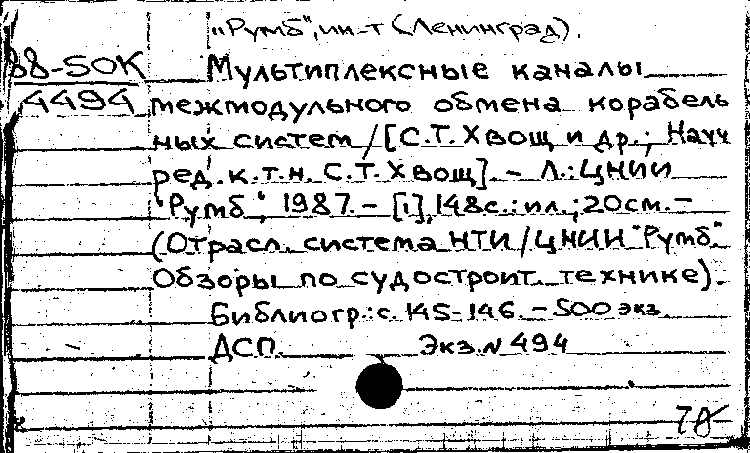 "Румб", ин-т (Ленинград).
88-50К Мультиплексные каналы
4494 межмодульного обмена корабель
ных систем / [С.Т. Хвощ и др.; Науч
ред. к.т.н. С.Т. Хвощ]. - Л.: ЦНИИ
"Румб", 1987. - [1], 148с.: ил.; 20см. -
(Отрасл. система НТИ / ЦНИИ "Румб"
Обзоры по судостроит. технике).
Библиогр.: с. 145-146. - 500 экз.
ДСП. Экз. № 494